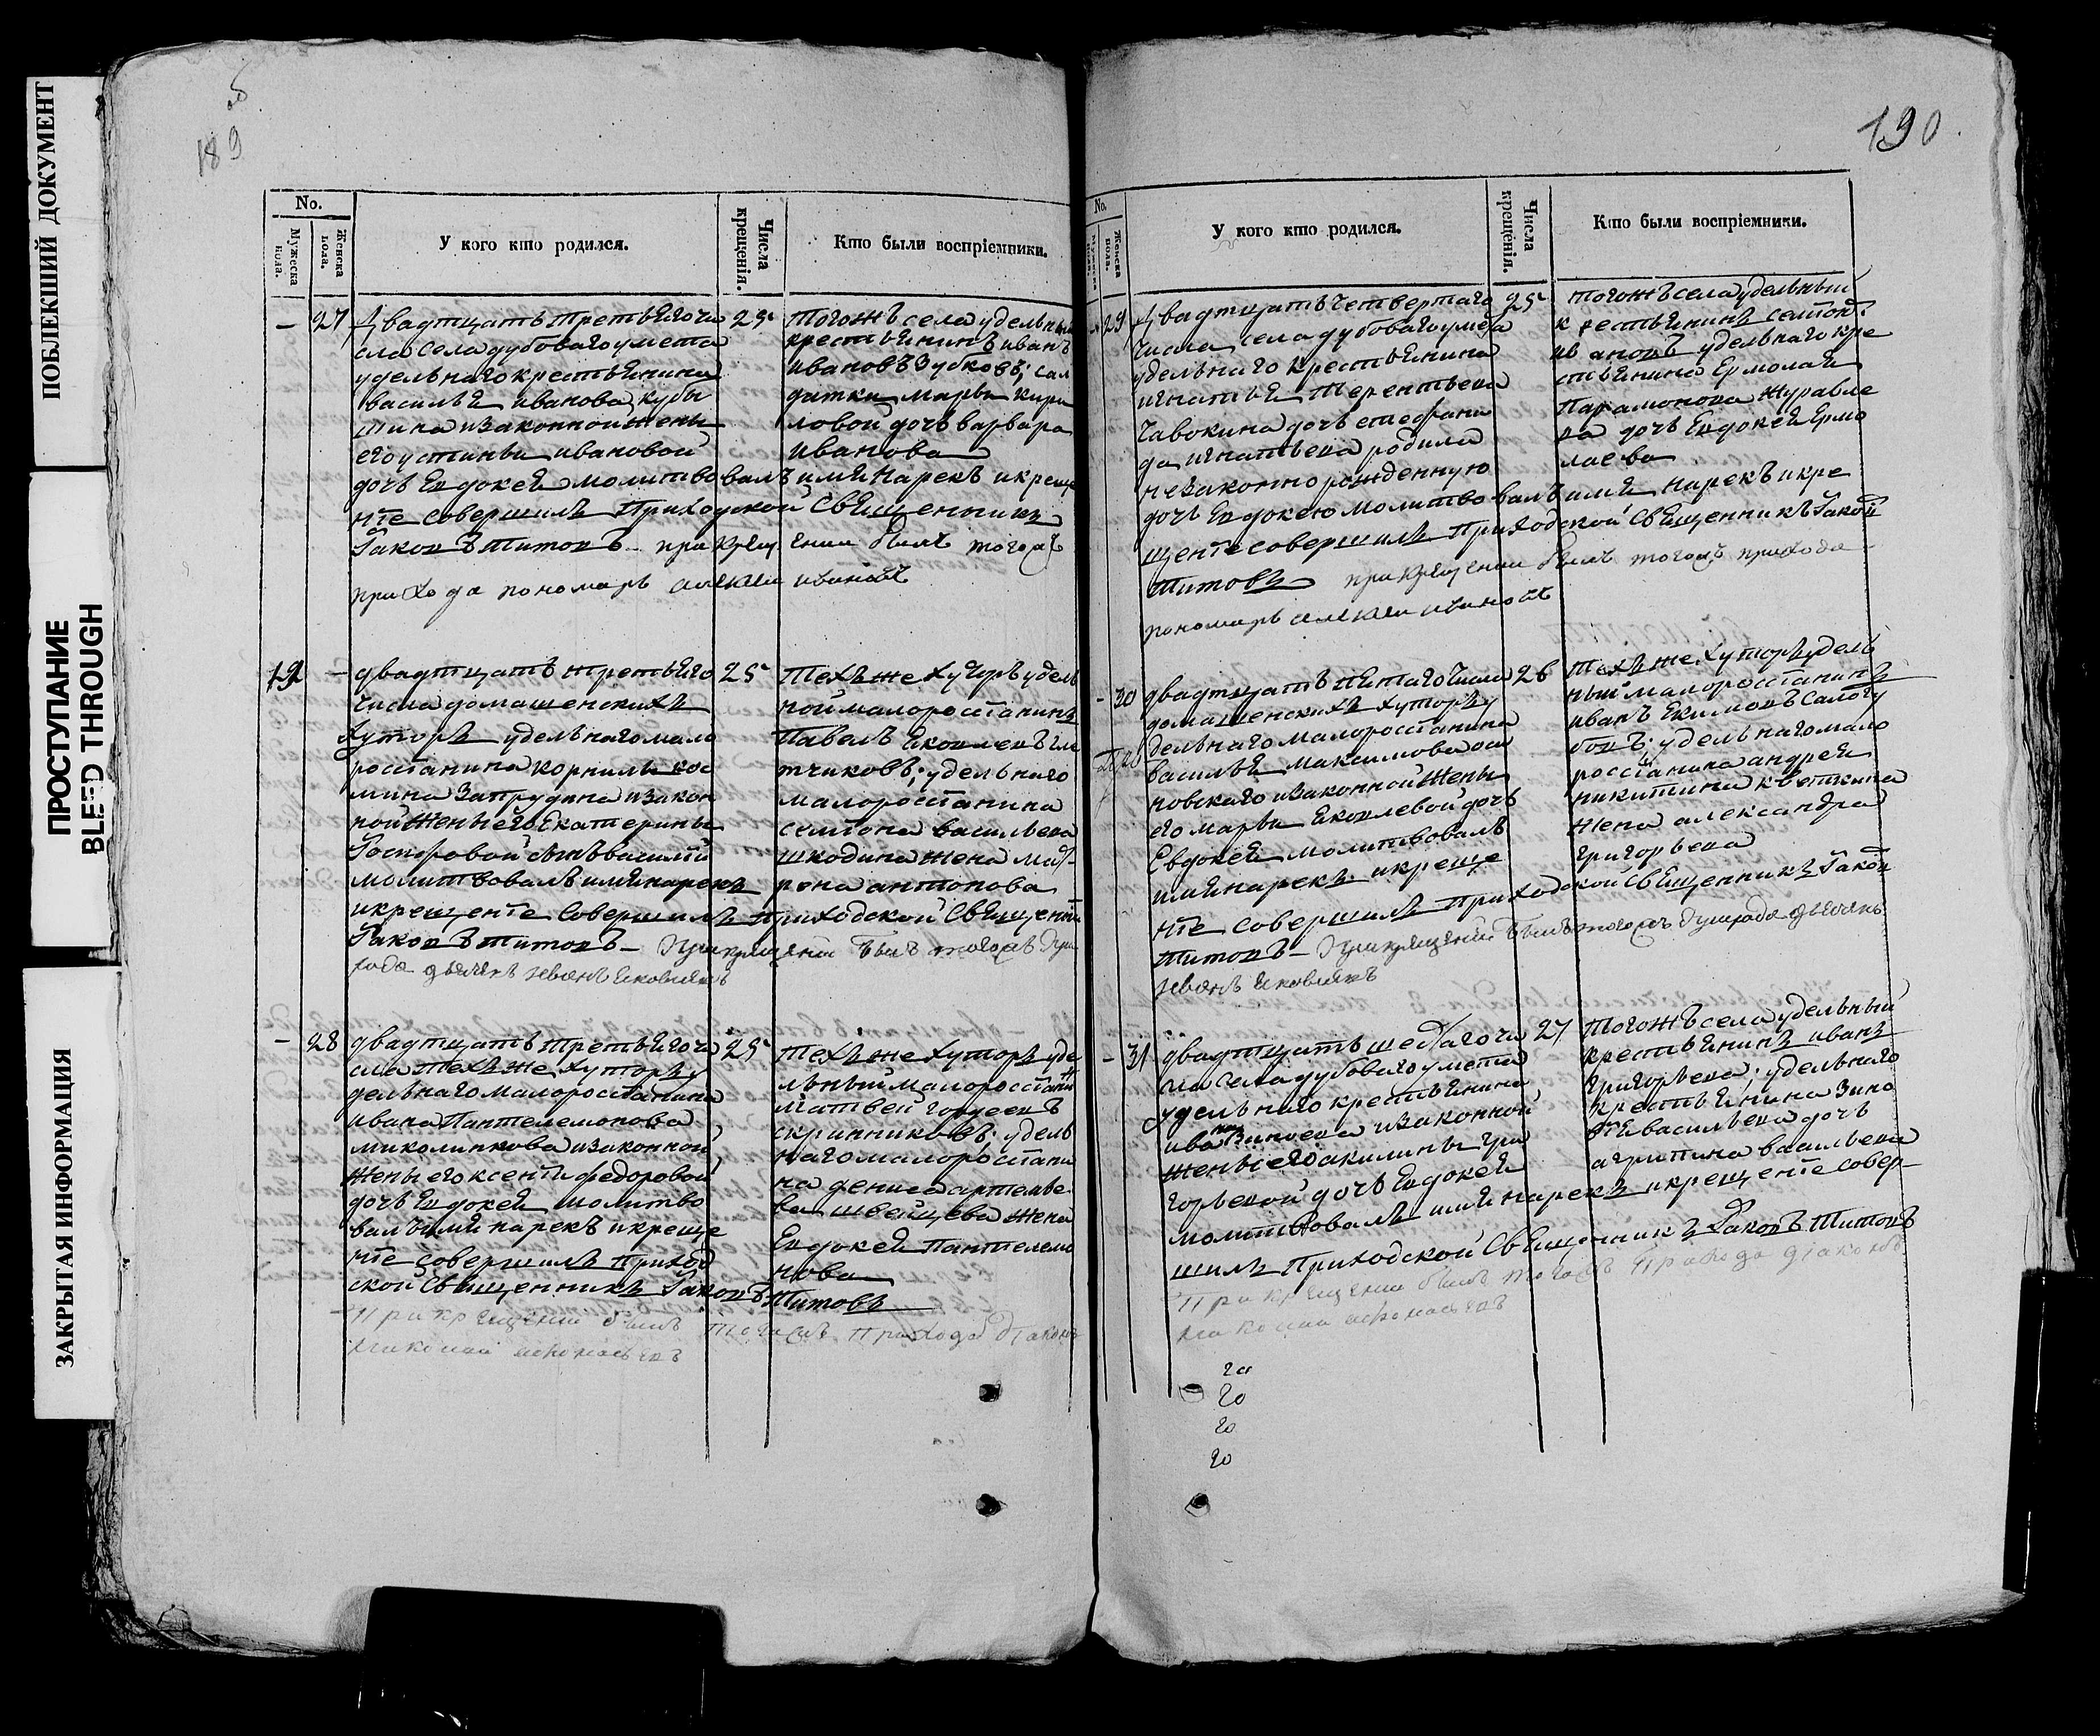 ПОБЛЕКШИЙ ДОКУМЕНТ
ПРОСТУПАНИЕ
BLEED THROUGH
ЗАКРЫТАЯ ИНФОРМАЦИЯ
об
189
No.
Мужеска пола.
Женска пола.
У кого кто родился.
Числа крещенія.
Кто были воспріемники.
– 27 Двадтцать третьягочи 25
сла села дубоваго умета
удельнаго крестьянина
василья иванова кубы
шина изаконной жены
его устиньи ивановой
дочь Евдокея молитвовалъ имя нарекъ икреще
ніе совершилъ Приходской Священникъ
Іаковъ Титовъ – при крещении былъ тогожъ
прихода пономарь алексеи ивановъ
тогожъ села удельный
крестьянинъ иванъ
ивановъ Зубковъ; сал
датки марьи кири
ловой дочь варвара
иванова
19 – двадтцать третьяго 25
числа домашенскихъ
хуторъ удельнаго мало
россіанина корнилы кос
мина Запрудина изакон
ной жены его Екатерины
сынъ василій
молитвовалъ имя нарекъ
икрещеніе совершилъ приходской Священникъ
Іаковъ Титовъ – При крещении былъ тогожъ при
хода дьячекъ иванъ яковлевъ
техъ же хуторъ удель
ной малороссіанинъ
Павелъ яковлевъ
удельнаго
малороссіанина
семіона васильева
шкодина жена мат
рена антонова
– 28 двадтцать третьягочи 25
сла техъ же хуторъ у
дельнаго малороссіанина
ивана Пантелемонова
миколинкова изаконной
жены его ксеніи федоровой
дочь Евдокея молитво
валъ имя нарекъ икреще
ніе совершилъ приход
ской Священникъ Іаковъ Титовъ
При крещении былъ тогожъ прихода діаконъ
николаи афонасьевъ
техъ же хуторъ уде
льный малороссіанинъ
Матвей гордеевъ
скринниковъ; удель
наго малороссіани
на дениса артемье
ва швейцева жена
Евдокея Пантелемо
нова
190
No.
Женска пола.
У кого кто родился.
Числа крещенія.
Кто были воспріемники.
29 Двадтцать четвертаго 25
числа села дубоваго умета
удельнаго крестьянина
игнатья Терентьева
Чавокина дочь стефани
да игнатьева родила
незаконно рожденную
дочь Евдокею молитвовалъ имя нарекъ икре
щеніе совершилъ приходской Священникъ Іаковъ
Титовъ при крещении былъ тогожъ прихода
пономарь алексеи ивановъ
тогожъ села удельный
крестьянинъ семіонъ
ивановъ удельнаго кре
стьянина Ермолая
Парамонова Журавле
ва дочь Евдокея Ермо
лаева
– 30 двадтцать пятаго числа 26
домашенскихъ хуторъ у
дельнаго малороссіанина
василья максимова оси
новскаго изаконной жены
его марьи яковлевой дочь
Евдокея молитвовалъ
имя нарекъ икреще
ніе совершилъ приходской Священникъ Іаковъ
Титовъ – При крещении былъ тогожъ прихода дьячекъ
иванъ яковлевъ
техъ же хуторъ удель
ный малороссіанинъ
иванъ Екимовъ
удельнаго мало
россіанина андрея
никитина кветкина
жена александра
григорьева
– 31 двадтцать шестаго чи 27
сла села дубоваго умета
удельнаго крестьянина
ивана Зиноева изаконной
жены его акилины гри
горьевой дочь Евдокея
молитвовалъ имя нарекъ икрещеніе совер
шилъ Приходской Священникъ Іаковъ Титовъ
При крещении былъ тогожъ Прихода діаконъ
николаи афонасьевъ
тогожъ села удельный
крестьянинъ иванъ
григорьева; удельнаго
крестьянина Зино
вія васильева дочь
агрипина васильева
20
20
20